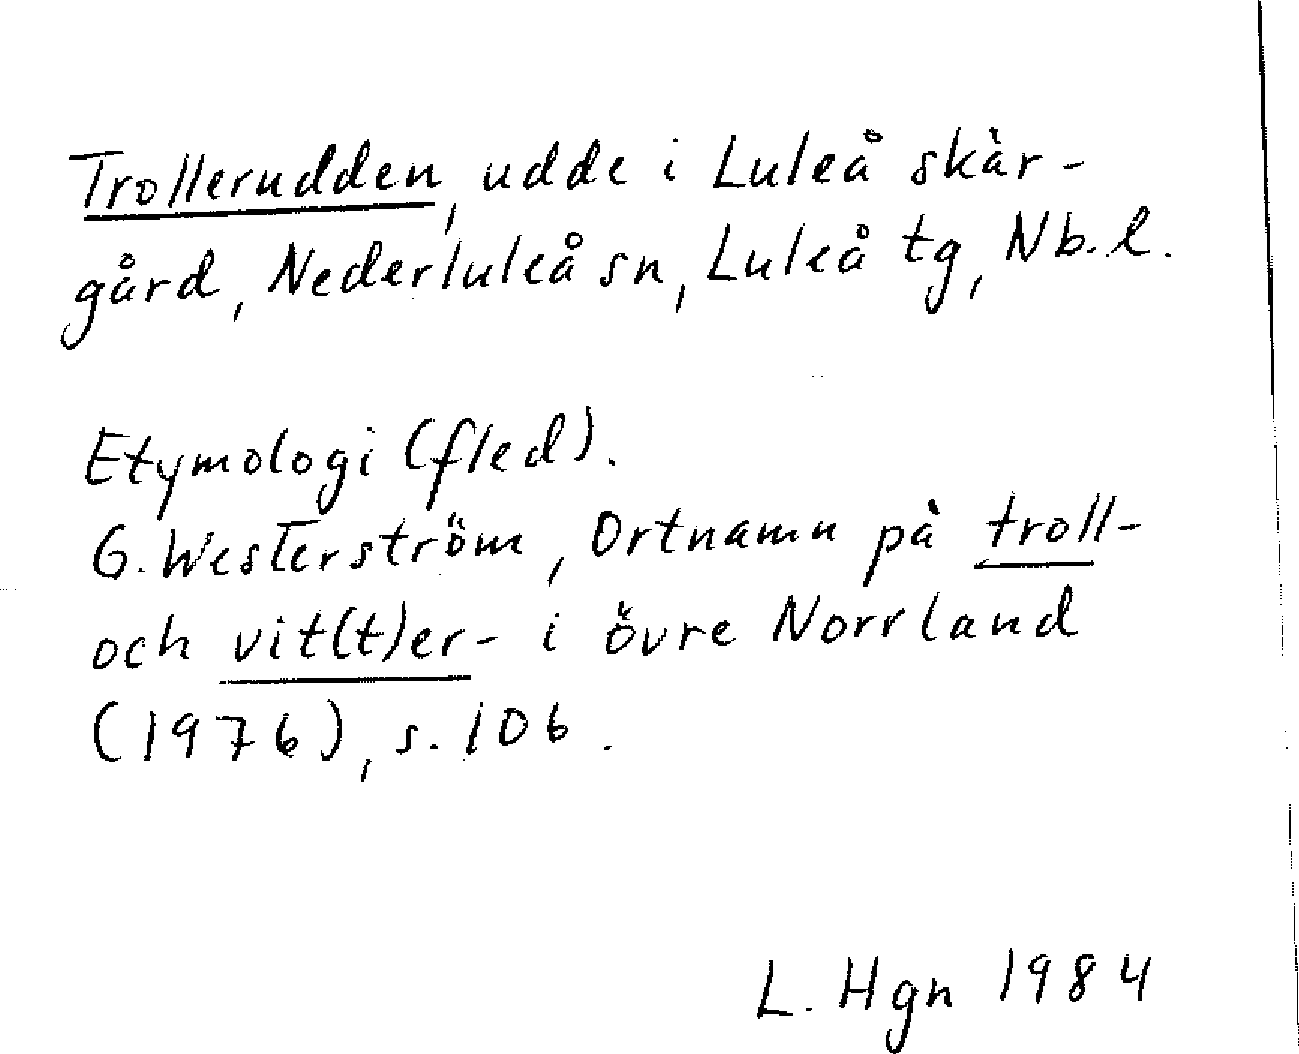 Trollerudden, udde i Luleå skär-
gård, Nederluleå sn, Luleå tg, Nb. l.
Etymologi (fled).
G. Westerström, Ortnamn på troll-
och vit(t)er- i övre Norrland
(1976), s. 106.
L. Hgn 1984